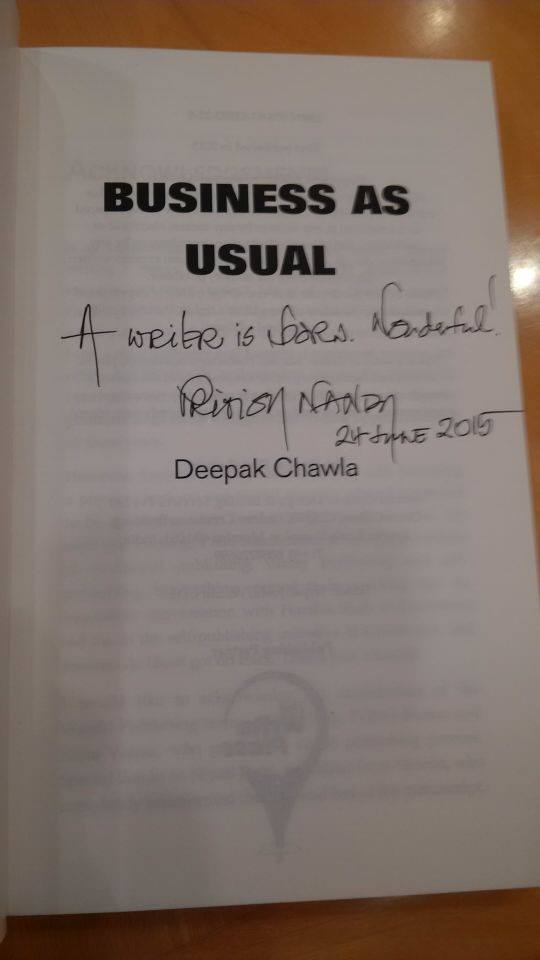 BUSINESS AS
USUAL
A writer is born. Wonderful!
PRITISH NANDY
24 JUNE 2015
Deepak Chawla